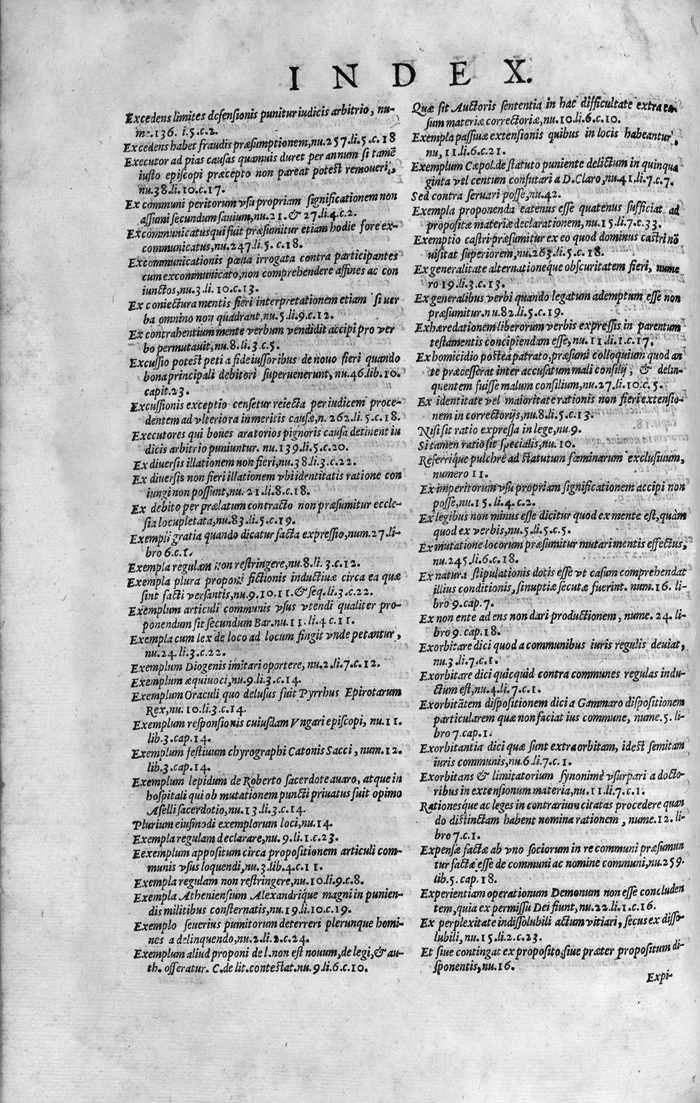 INDEX.
Excedens limites defensionis punitur iudicis arbitrio, nu-
me.136. l.5.c.2.
Excedens habet fraudis præsumptionem, nu.257.li.5.c.18
Executor ad pias causas quamuis duret per annum si tamē
iusto episcopi præcepto non pareat potest remoueri,
nu.38.li.10.c.17.
Ex communi peritorum vsu propriam significationem non
assumi secundum sauium, nu.21.& 27.li.4.c.2.
Excommunicatus qui fuit præsumitur etiam hodie fore ex-
communicatus, nu.247.li.5.c.18.
Excommunicationis pœna irrogata contra participantes
cum excommunicato, non comprehendere affines ac con
iunctos, nu.3.li.10.c.13.
Ex coniectura mentis fieri interpretationem etiam si ver
ba omnino non quadrant, nu.5.li.9.c.12.
Ex contrahentium mente verbum vendidit accipi pro ver
bo permutauit, nu.8.li.3.c.5.
Excussio potest peti a fideiussoribus de nouo fieri quando
bona principali debitori superuenerunt, nu.46.lib.10.
capit.23.
Excussionis exceptio censetur reiecta per iudicem proce-
dentem ad vlteriora in meritis causæ, n.262.li.5.c.18.
Executores qui boues aratorios pignoris causa detinent iu
dicis arbitrio puniuntur. nu.139.li.5.c.20.
Ex diuersis illationem non fieri, nu.38.li.3.c.22.
Ex diuersis non fieri illationem vbi identitatis ratione con
iungi non possunt, nu.21.li.8.c.18.
Ex debito per prælatum contracto non præsumitur eccle-
sia locupletata, nu.83.li.5.c.19.
Exempli gratia quando dicatur facta expressio, num.27.li-
bro 6.c.1.
Exempla regulam non restringere, nu.8.li.3.c.12.
Exempla plura proponi fictionis inductiuæ circa ea quæ
sint facti versantis, nu.9.10.11.& seq.li.3.c.22.
Exemplum articuli communis vsus vtendi qualiter pro-
ponendum sit secundum Bar.nu.11.li.4.c.11.
Exempla cum lex de loco ad locum fingit vnde petantur,
nu.24.li.3.c.22.
Exemplum Diogenis imitari oportere, nu.2.li.7.c.12.
Exemplum æquiuoci, nu.9.li.3.c.14.
Exemplum Oraculi quo delusus fuit Pyrrhus Epirotarum
Rex, nu.10.li.3.c.14.
Exemplum responsionis cuiusdam Vngari episcopi, nu.11.
lib.3.cap.14.
Exemplum festiuum chyrographi Catonis Sacci, num.12.
lib.3.cap.14.
Exemplum lepidum de Roberto sacerdote auaro, atque in
hospitali qui ob mutationem puncti priuatus fuit opimo
Aselli sacerdotio, nu.13.li.3.c.14.
Plurium eiusmodi exemplorum loci, nu.14.
Exempla regulam declarare, nu.9.li.1.c.23.
Eexemplum appositum circa propositionem articuli com-
munis vsus loquendi, nu.3.lib.4.c.11.
Exempla regulam non restringere, nu.10.li.9.c.8.
Exempla Atheniensium Alexandrique magni in punien-
dis militibus consternatis, nu.19.li.10.c.19.
Exemplo seuerius punitorum deterreri plerunque homi-
nes a delinquendo, nu.2.li.2.c.24.
Exemplum aliud proponi de l.non est nouum, de legi, & au-
th. offeratur. C.de lit.contestat.nu.9.li.6.c.10.
Quæ sit Auctoris sententia in hac difficultate extra ca
sum materiæ correctoriæ, nu.10.li.6.c.10.
Exempla passiuæ extensionis quibus in locis habeantur,
nu, 11.li.6.c.21.
Exemplum Cæpol.de statuto puniente delictum in quinqua
ginta vel centum confutari a D.Claro, nu.41.li.7.c.7.
Sed contra seruari posse, nu.42.
Exempla proponenda eatenus esse quatenus sufficiat ad
propositæ materiæ declarationem, nu.15.li.7.c.33.
Exemptio castri præsumitur ex eo quod dominus castri nō
uisitat superiorem, nu.263.li.5.c.18.
Ex generalitate alternationeque obscuritatem fieri, nume
ro 19.li.3.c.13.
Ex generalibus verbi quando legatum ademptum esse non
præsumitur. nu.82.li.5.c.19.
Exhæredationem liberorum verbis expressis in parentum
testamentis concipiendam esse, nu.11.li.1.c.17.
Ex homicidio postea patrato, præsumi colloquium quod an
te præcesserat inter accusatum mali consilij, & delin-
quentem fuisse malum consilium, nu.27.li.10.c.5.
Ex identitate vel maioritate rationis non fieri extensio-
nem in correctorijs, nu.8.li.5.c.13.
Nisi sit ratio expressa in lege, nu.9.
Si tamen ratio sit specialis, nu.10.
Referrique pulchrè ad statutum fœminarum exclusiuum,
numero 11.
Ex imperitorum vsu propriam significationem accipi non
posse, nu.15.li.4.c.2.
Ex legibus non minus esse dicitur quod ex mente est, quàm
quod ex verbis, nu.5.li.5.c.5.
Ex mutatione locorum præsumitur mutari mentis effectus,
nu.245.li.6.c.18.
Ex natura stipulationis dotis esse vt casum comprehendat
illius conditionis, si nuptiæ secutæ fuerint. num.16.li-
bro 9.cap.7.
Ex non ente ad ens non dari productionem, nume. 24.li-
bro 9.cap.18.
Exorbitare dici quod a communibus iuris regulis deuiat,
nu.3.li.7.c.1.
Exorbitare dici quicquid contra communes regulas indu-
ctum est, nu.4.li.7.c.1.
Exorbitātem dispositionem dici a Gammaro dispositionem
particularem quæ non faciat ius commune, nume.5.li-
bro 7.cap.1.
Exorbitantia dici quæ sunt extra orbitam, idest semitam
iuris communis, nu.6.li.7.c.1.
Exorbitans & limitatorium synonimè vsurpari a docto-
ribus in extensionum materia, nu.11.li.7.c.1.
Rationesque ac leges in contrarium citatas procedere quan
do distinctam habent nomina rationem, nume.12.li-
bro 7.c.1.
Expensæ factæ ab vno sociorum in re communi præsumun
tur factæ esse de communi ac nomine communi, nu.259.
lib.5.cap.18.
Experientiam operationum Demonum non esse concluden
tem, quia ex permissu Dei fiunt, nu.22.li.1.c.16.
Ex perplexitate indissolubili actum vitiari, secus ex disso-
lubili, nu.15.li.2.c.23.
Et siue contingat ex proposito, siue præter propositum di-
sponentis, nu.16.
Expi-